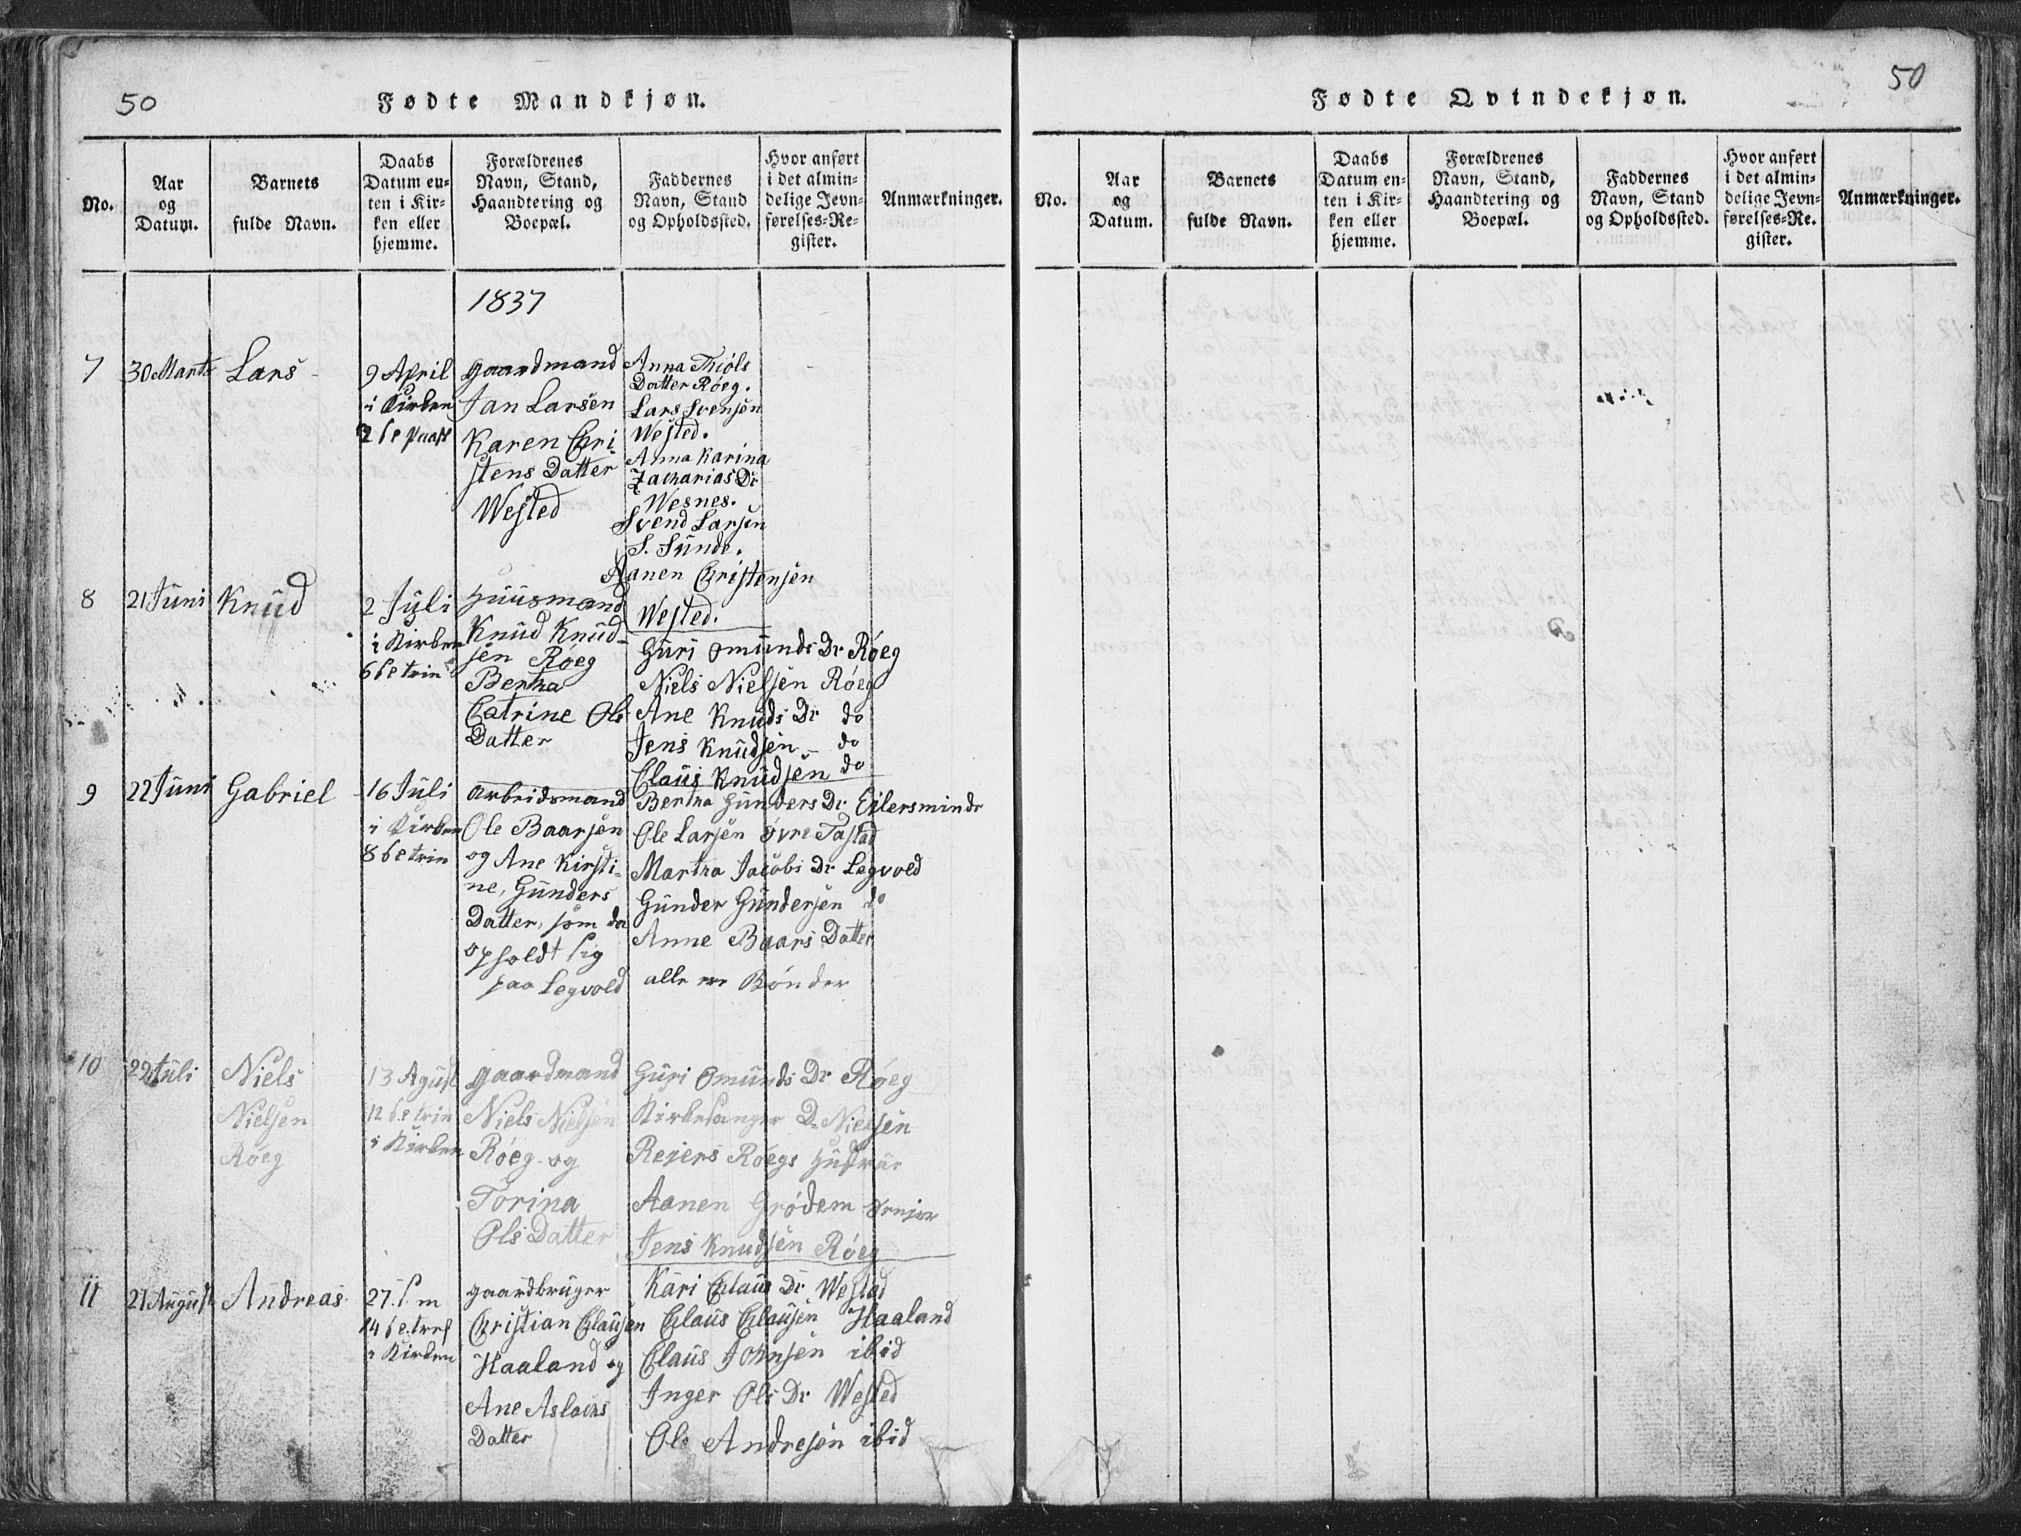 50
Fødte Mandkjøn.
No.
Aar
og
Datum.
Barnets
fulde Navn.
Daabs
Datum en-
ten i Kir-
ken eller
hjemme.
Forældrenes
Navn, Stand,
Haandtering og
Boepæl.
Faddernes
Navn, Stand
og Opholdssted.
Hvor anført
i det almin-
delige Jevn-
førelses-Re-
gister.
Anmærkninger.
1837
7
30 Marts
Lars
9 April
i Kirken
2 de Paask
Gaardmand
Jan Larsen
Karen Chri
stens Datter
Wested
Anna Thiöls
Datter Röeg.
Lars Svensen
Wested.
Anna Karina
Zacharias Dr
Wesnes.
Svend Larsen
S. Sunde.
Aanen Christensen
Wested.
8
21 Juni
Knud
2 Juli
i Kirken
6 te trin
Huusmand
Knud Knud-
sen Röeg
Bertha
Catrine Ols
Datter
Guri Omunds Dr Röeg
Niels Nielsen Röeg
Ane Knuds Dr do
Jens Knudsen - do
Claus Knudsen do
9
22 Juni
Gabriel
16 Juli
i Kirken
8 de trin
Arbeidsmand
Ole Baarsen
og Ane Kirsti-
ne, Gunders
Datter, som da
opholdt sig
paa Legvold
Bertha Gunders Dr Eilersminde
Ole Larsen Øvre Tastad
Martha Jacobs Dr Legvold
Gunder Gundersen do
Anne Baars Datter
alle ere Bönder
10
22 Juli
Niels
Nielsen
Röeg
13 Agust
12 te trin
i Kirken
Gaardmand
Niels Nielsen
Röeg og
Torina
Ols Datter
Guri Omunds Dr Röeg
Kirkesanger D. Nielsen
Rejers Röegs
Aanen Grödem
Jens Knudsen Röeg
11
21 August
Andreas
27. s. m
14 de tref
i Kirken
Gaardbruger
Christian Clausen
Haaland og
Ane Aslachs
Datter
Kari Claus Dr Wested
Claus Clausen Haaland
Claus Johnsen ibid
Inger Ols Dr Wested
Ole Andresen ibid
50
Fødte Qvindekjøn.
No.
Aar
og
Datum.
Barnets
fulde Navn.
Daabs
Datum en-
ten i Kir-
ken eller
hjemme.
Forældrenes
Navn, Stand,
Haandtering og
Boepæl.
Faddernes
Navn, Stand
og Opholdssted.
Hvor anført
i det almin-
delige Jevn-
førelses-Re-
gister.
Anmærkninger.